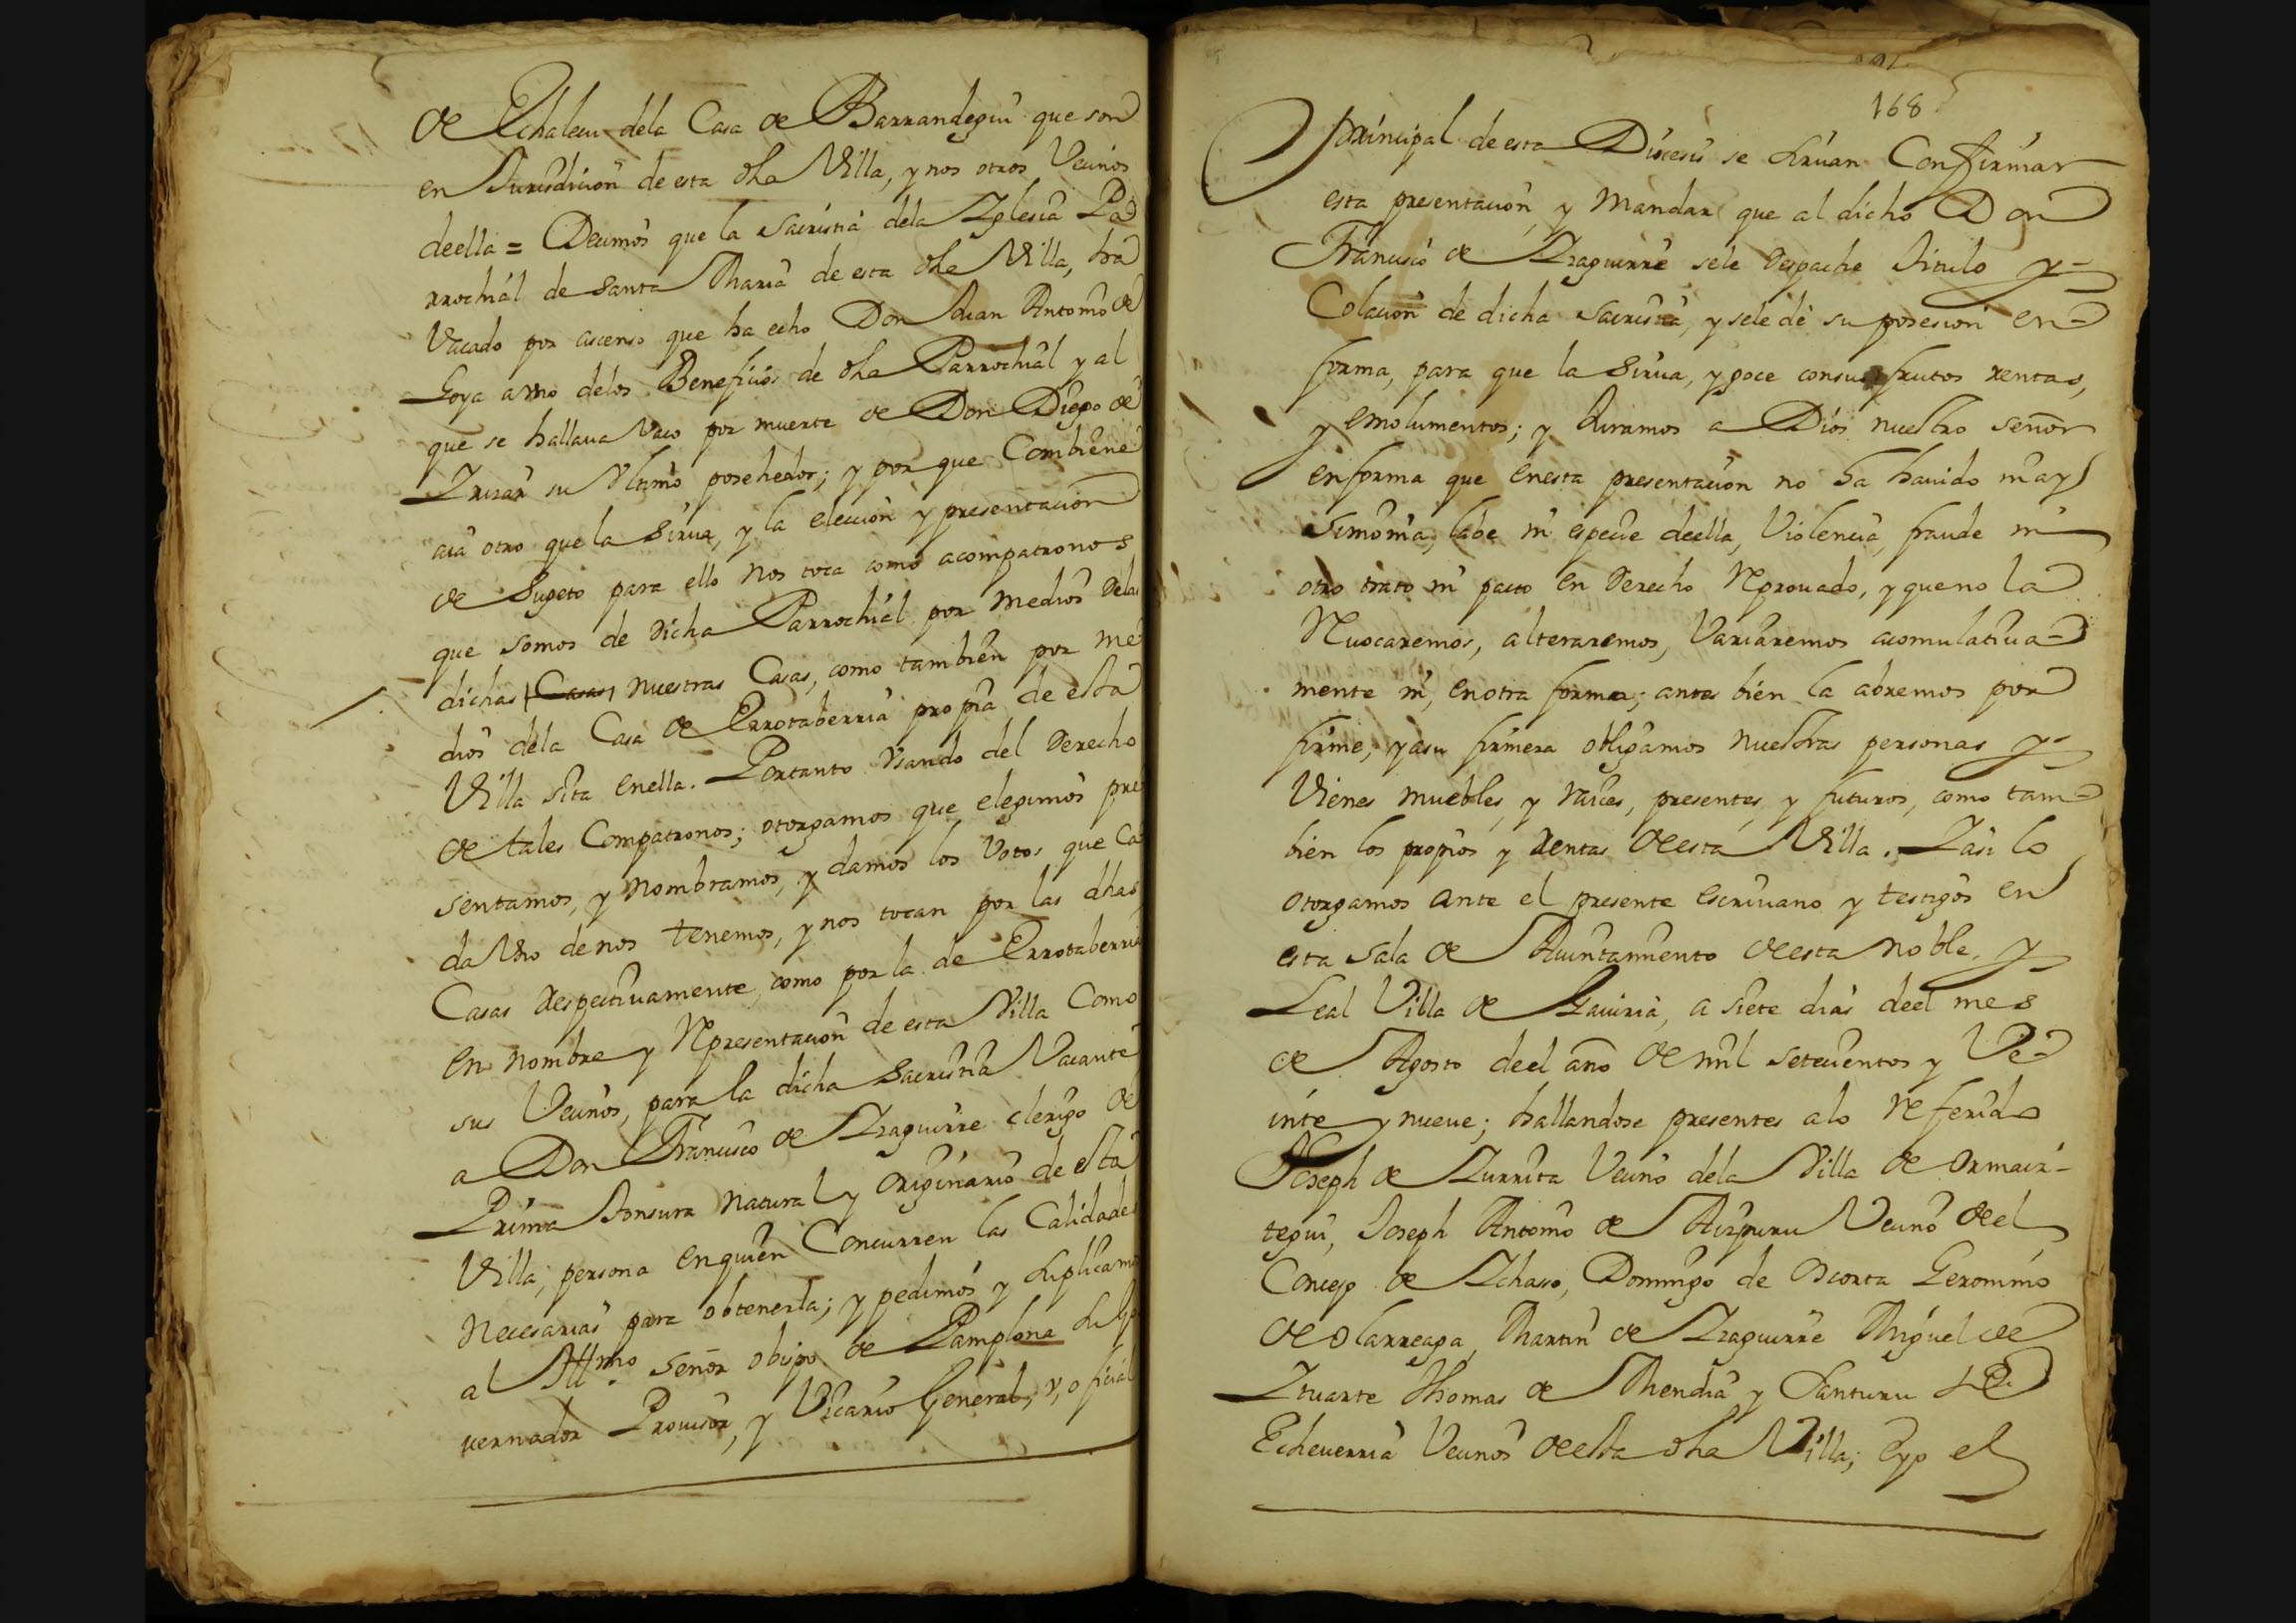 de Echalecu dela Casa de Barrandegui que son
en Jurisdicion de esta dha Villa, y nos otros Vecinos
deella = Decimos que la Sacristia dela Yglesia Pa
rrochial de Santa Maria de esta dha Villa, ha
Vacado por ascenso que ha echo Don Juan Antonio de
Goya a vno delos Beneficios de dha Parrochial y al
que se hallaua Vaco por muerte de Don Diego de
su Vltimo posehedor; y por que Combiene
aia otro que la Sirua, y la eleccion y presentacion
de Sugeto para ello nos toca como acompatronos
que somos de dicha Parrochial por medios delas
dichas Casas nuestras Casas, como tambien por me
dios dela Casa de Errotaberria propia de esta
Villa sita enella. Portanto Vsando del derecho
de tales Compatronos; otorgamos que elegimos pre
sentamos, y nombramos, y damos los Votos que Ca
da Vno de nos tenemos, y nos tocan por las dhas
Casas respectiuamente, como por la de Errotaberria
en nombre y Representacion de esta Villa Como
sus Vecinos, para la dicha Sacristia Vacante
a Don Francisco de Yraguirre clerigo de
Prima Tonsura natural y originario de esta
Villa, persona enquien Concurren las Calidades
necesarias para obtenerla; y pedimos y Suplicamos
al Illmo. Señor obispo de Pamplona Su Go
uernador Prouisor, y Vicario General, y, oficial
168
principal de esta Diocesis se Siruan Confirmar
esta presentacion y Mandar que al dicho Don
Francisco de Yraguirre sele despache Titulo y
Colacion de dicha Sacristia, y sele dè su posesion en
forma, para que la Sirua, y goce consus frutos rentas,
y emolumentos; y Juramos a Dios nuestro Señor
enforma que enesta presentacion no ha hauido nay
Simonia, labe ni especie deella, Violencia, fraude ni
otro trato ni pacto en derecho Reprouado, y que no la
Reuocaremos, alteraremos, Variaremos acomulatiua
mente ni, enotra forma; antes bien la abremos por
firme, y asu firmeza obligamos nuestras personas y
Vienes muebles, y raices, presentes, y futuros, como tam
bien los propios y Rentas deesta Villa. Y asi lo
otorgamos ante el presente escriuano y testigos en
esta Sala de Aiuntamiento deesta noble, y
Leal Villa de Gauiria, a siete dias deel mes
de Agosto deel año de mil setecientos y Ve
inte y nueve; hallandose presentes alo Referido
Joseph de Zurrita Vecino dela Villa de Ormaiz-
tegui, Joseph Antonio de Aizpuru Vecino deel
Concejo de Ychaso, Domingo de Oscorta Geronimo
de Olarreaga, Martin de Yraguirre Miguel de
Ytuarte Thomas de Mendia y Santuru de
Echeuerria Vecinos deesta dha Villa; E yo el